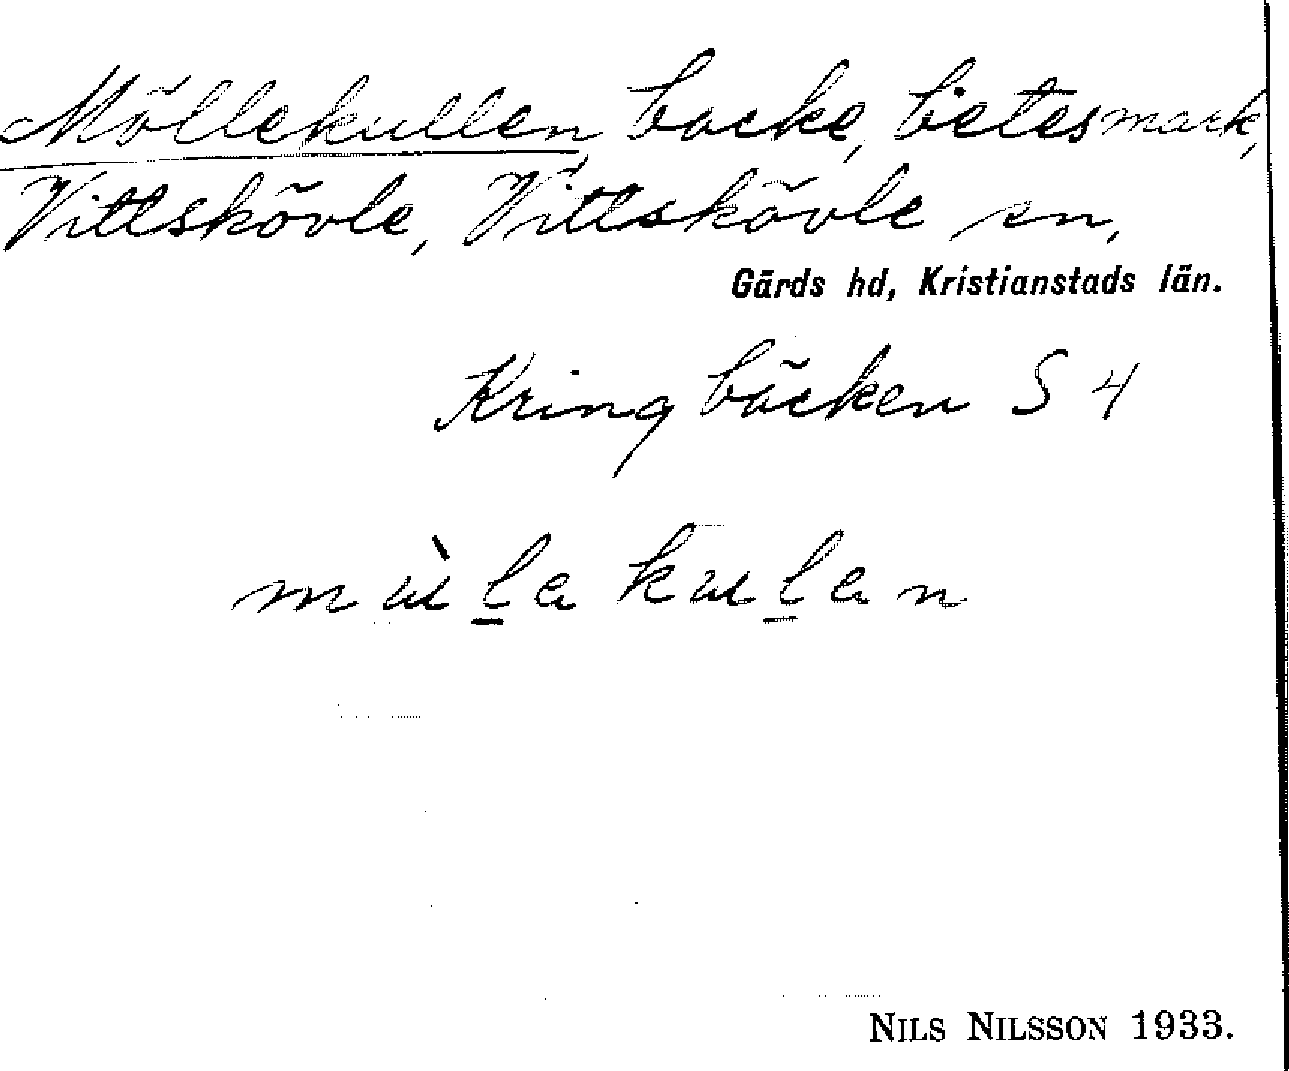 Möllekullen, backe, betesmark,
Vittskövle, Vittskövle sn,
Gärds hd, Kristianstads län.
Kring bäcken S 4
mùla kulan
NILS NILSSON 1933.